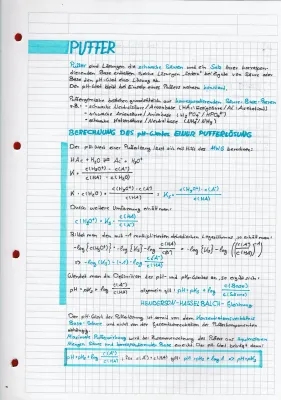 PUFFER
Puffer sind Lösungen die schwache Säuren und ein Salz ihrer korrespon-
dierenden Base enthalten. Solche Lösungen "ändern" bei Zugabe von Säure oder
Base den pH-Wert einer Lösung
Der pH-Wert bleibt bei Einsatz eines Puffers nahezu konstant.
Puffersysteme bestehen grundsätzlich aus korrespondierenden Säure-Base-Paaren
z.B. - schwache Neutralsäure / Anionbase (HAc: Essigsäure / Ac⁻: Acetation)
- schwache Anionsäure / Anionbase (H₂PO₄⁻ / HPO₄²⁻)
- schwache Kationsäure / Neutralbase (NH₄⁺/NH₃)
BERECHNUNG DES pH-Wertes EINER PUFFERLÖSUNG
Der pH-Wert einer Pufferlösung lässt sich mit Hilfe des MWG berechnen:
HAc + H₂O ⇌ Ac⁻ + H₃O⁺
K = c(H₃O⁺) · c(A⁻) / c(HA) · c(H₂O)
K · c(H₂O) = c(H₃O⁺) · c(A⁻) / c(HA) = Ks = c(H₃O⁺) · c(A⁻) / c(HA)
Durch weitere Umformung erhält man:
c(H₃O⁺) = Ks · c(HA) / c(A⁻)
Bildet man den mit -1 multiplizierten dekadischen Logarithmus, so erhält man:
-log{c(H₃O⁺)} = -log{Ks} - log c(HA)/c(A⁻) = -log{Ks} - log (c(A⁻)/c(HA))⁻¹
⇒ -log{Ks} - (-1) · log c(A⁻)/c(HA)
Wendet man die Definitionen der pH- und pKs-Werte an, so ergibt sich:
pH = pKs + log c(A⁻)/c(HA) allgemein gilt: pH = pKs + log c(Base)/c(Säure)
HENDERSON-HASSELBALCH-Gleichung
Der pH-Wert der Pufferlösung ist somit von dem Konzentrationsverhältnis
Base : Säure und nicht von der Gesamtkonzentration der Pufferkomponenten
abhängig.
Maximale Pufferwirkung wird bei Zusammensetzung des Puffers aus äquivalenten
Mengen Säure und korrespondierender Base erreicht. Der pH-Wert beträgt dann:
pH = pKs + log c(A⁻)/c(HA)